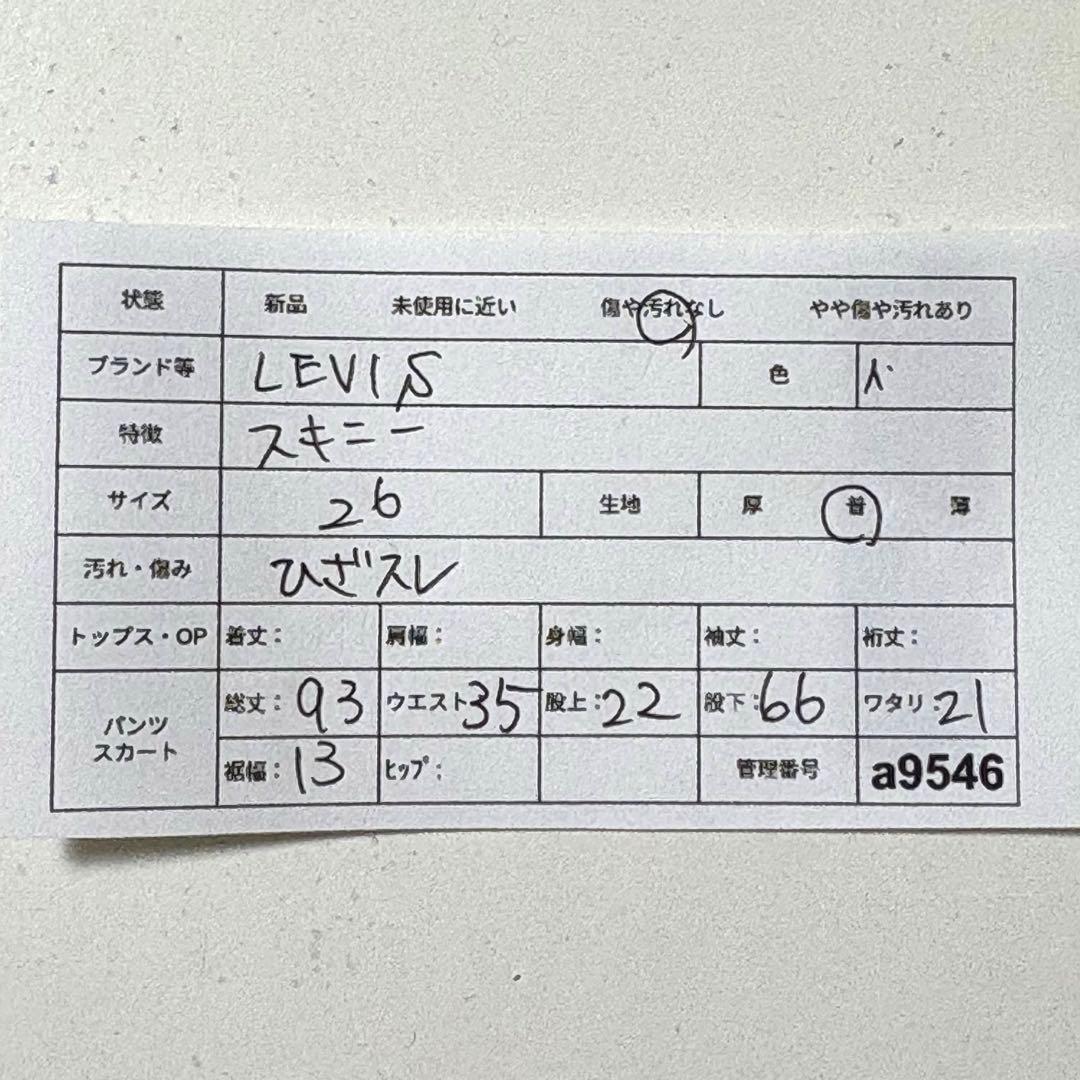 状態 新品 未使用に近い 傷や汚れなし やや傷や汚れあり
ブランド等 LEVI,S 色
特徴 スキニー
サイズ 26 生地 厚 普 薄
汚れ・傷み ひざスレ
トップス・OP 着丈: 肩幅: 身幅: 袖丈: 裄丈:
パンツ
スカート
総丈:93 ウエスト35 股上:22 股下:66 ワタリ:21
裾幅:13 ヒップ: 管理番号 a9546